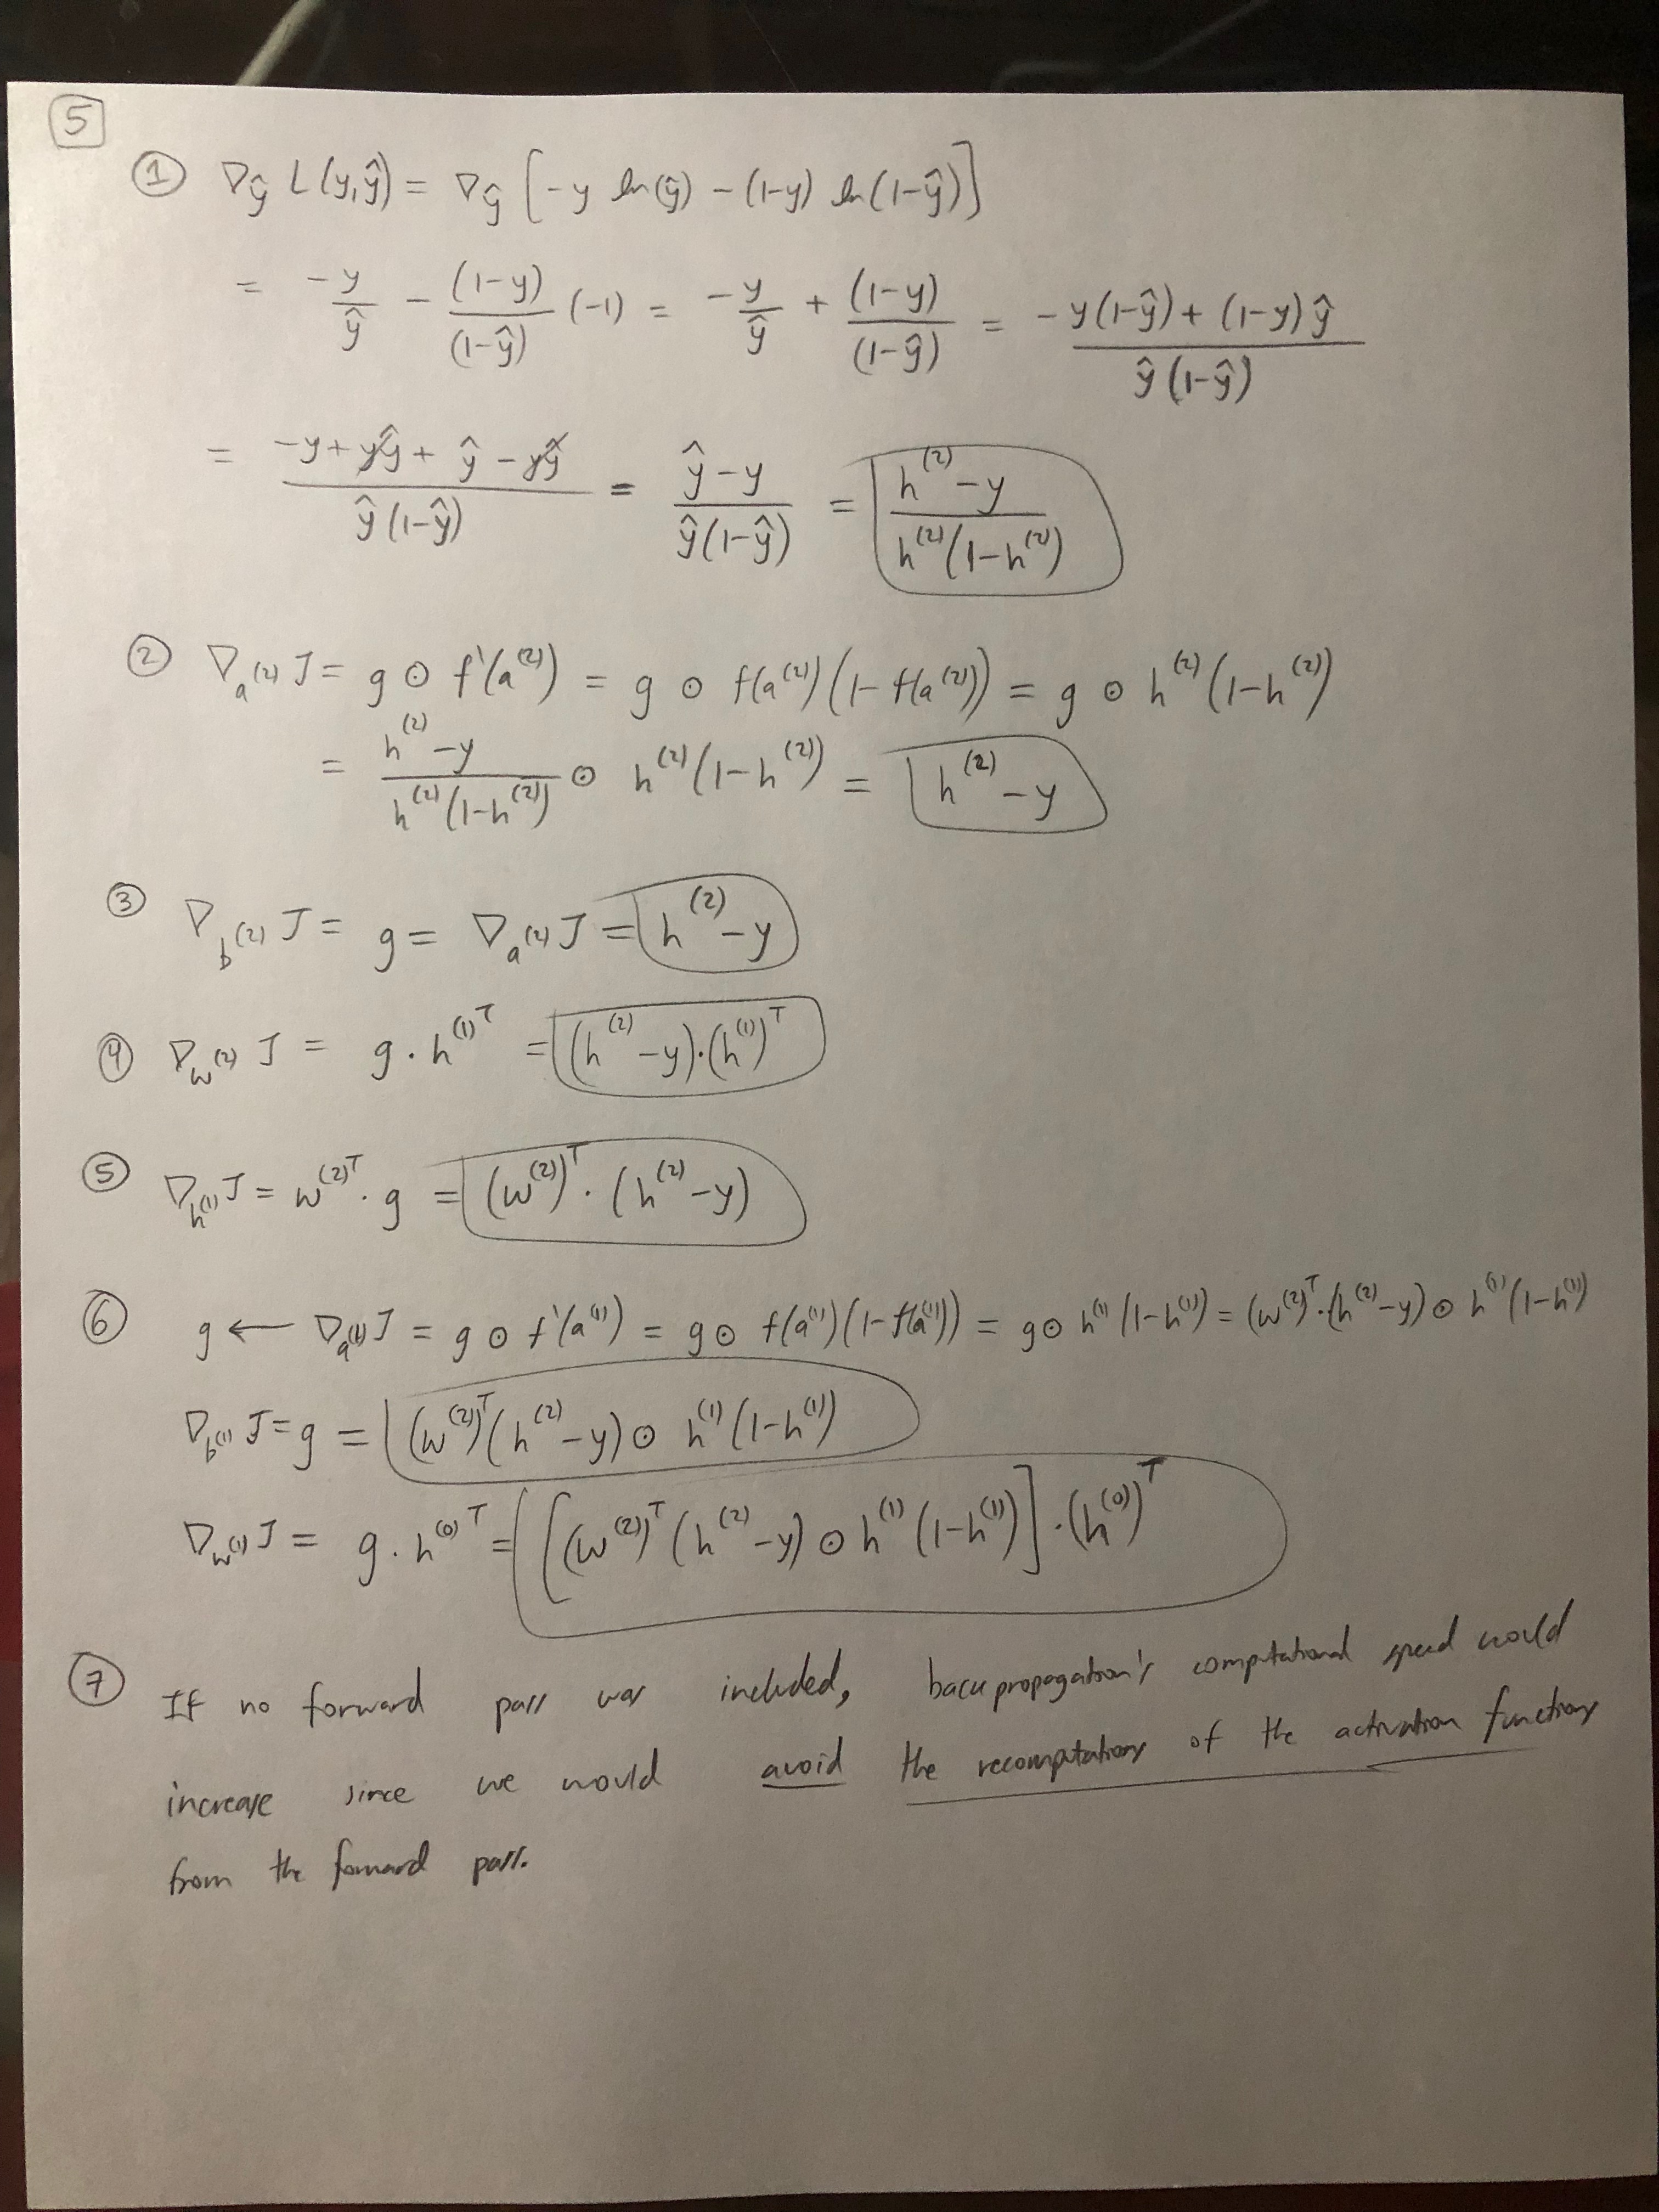 5
① ∇_ŷ L(y,ŷ) = ∇_ŷ [-y ln(ŷ) - (1-y) ln(1-ŷ)]
= -y/ŷ - (1-y)/(1-ŷ) (-1) = -y/ŷ + (1-y)/(1-ŷ) = -y(1-ŷ) + (1-y)ŷ / ŷ(1-ŷ)
= -y + yŷ + ŷ - yŷ / ŷ(1-ŷ) = ŷ-y / ŷ(1-ŷ) = h^(2) - y / h^(2)(1-h^(2))
② ∇_a^(2) J = g ⊙ f'(a^(2)) = g ⊙ f(a^(2))(1-f(a^(2))) = g ⊙ h^(2)(1-h^(2))
= h^(2) - y / h^(2)(1-h^(2)) ⊙ h^(2)(1-h^(2)) = h^(2) - y
③ ∇_b^(2) J = g = ∇_a^(2) J = h^(2) - y
④ ∇_w^(2) J = g · h^(1)^T = (h^(2) - y)·(h^(1))^T
⑤ ∇_h^(1) J = w^(2)^T · g = (w^(2))^T · (h^(2) - y)
⑥ g ← ∇_a^(1) J = g ⊙ f'(a^(1)) = g ⊙ f(a^(1))(1-f(a^(1))) = g ⊙ h^(1)(1-h^(1)) = (w^(2))^T·(h^(2)-y) ⊙ h^(1)(1-h^(1))
∇_b^(1) J = g = (w^(2))^T(h^(2) - y) ⊙ h^(1)(1-h^(1))
∇_w^(1) J = g · h^(0)^T = [(w^(2))^T(h^(2) - y) ⊙ h^(1)(1-h^(1))]·(h^(0))^T
⑦ If no forward pass was included, backpropagation's computational speed would
increase since we would avoid the recomputations of the activation functions
from the forward pass.